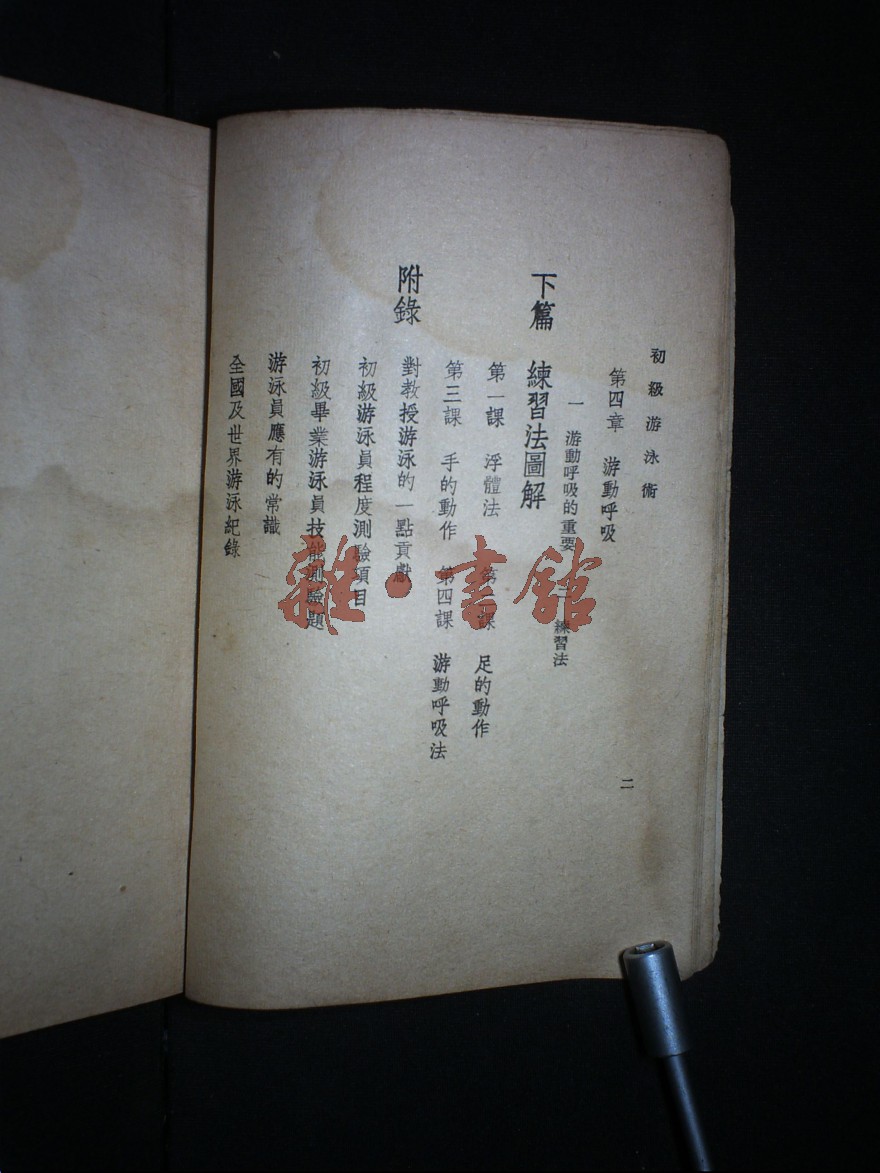 初級游泳術
二
第四章　游動呼吸
一　游動呼吸的重要　二　練習法
下篇　練習法圖解
第一課　浮體法　第二課　足的動作
第三課　手的動作　第四課　游動呼吸法
附錄
對教授游泳的一點貢獻
初級游泳員程度測驗項目
初級畢業游泳員技能測驗題
游泳員應有的常識
全國及世界游泳紀錄
雜·書館